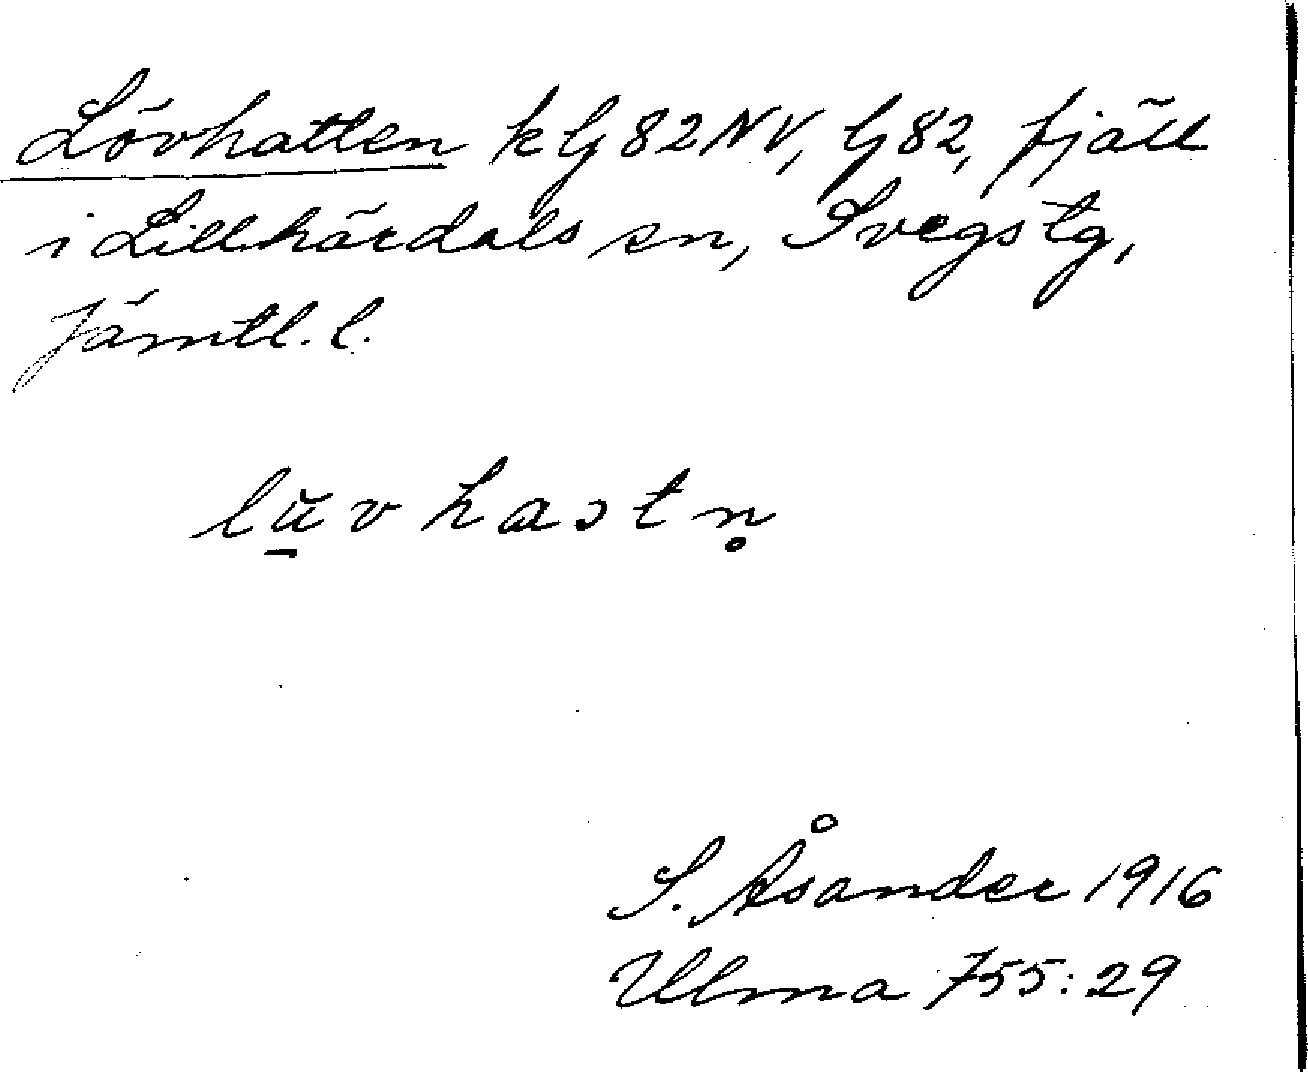 Lövhatten k G 82 NV, G 82, fjäll
i Lillhärdals sn, Svegs tg,
Jämtl. l.
lu̠v hastn̥
S. Åsander 1916
Ulma 755:29